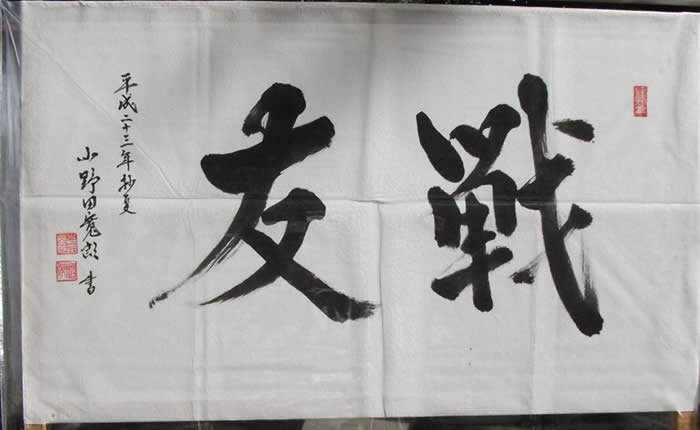 戦友
平成二十三年杪夏
小野田寛郎 書